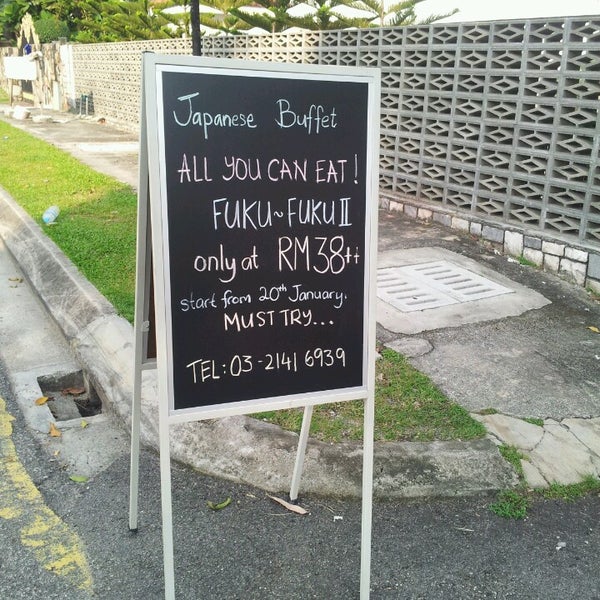 Japanese Buffet
ALL YOU CAN EAT!
FUKU~FUKU II
only at RM38++
start from 20th January.
MUST TRY...
TEL: 03-2141 6939